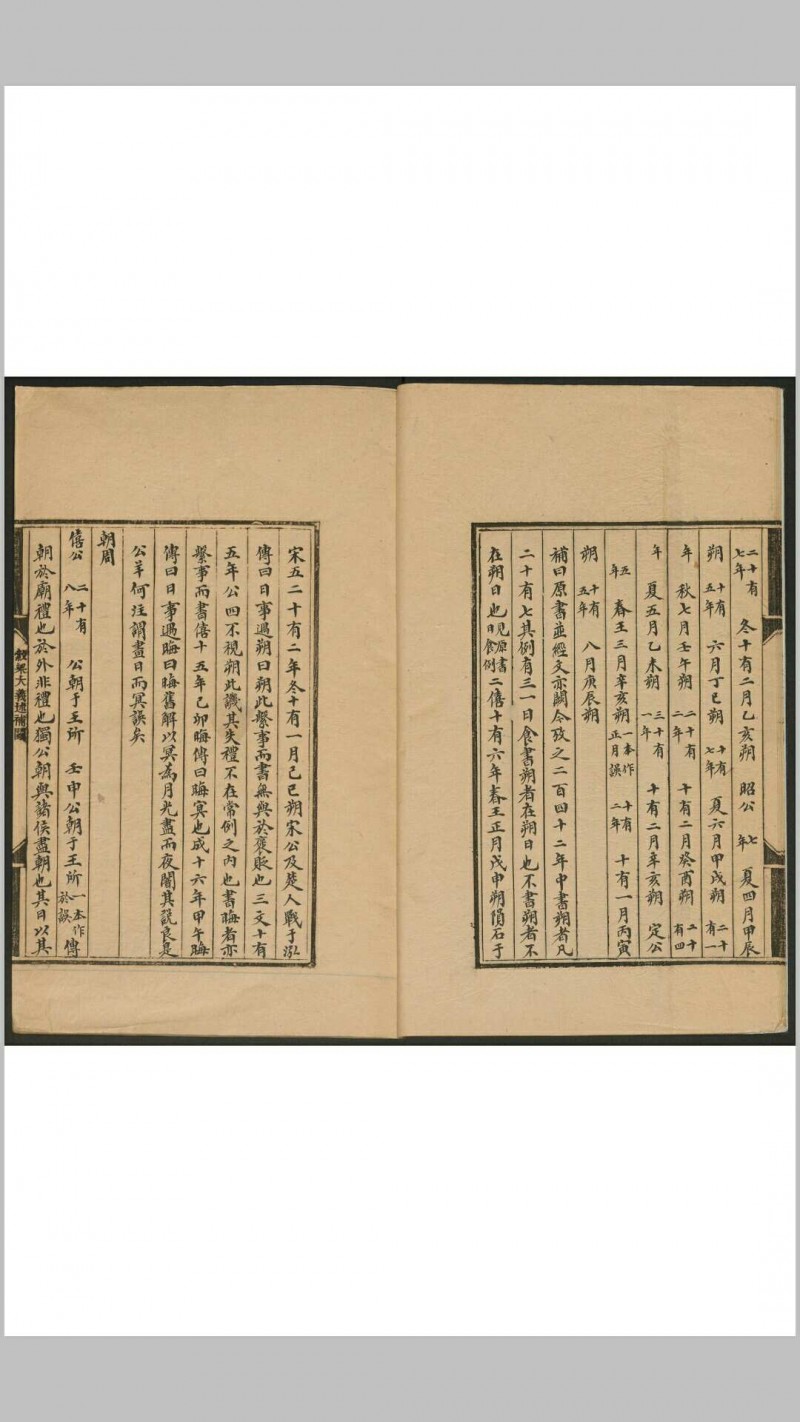 二十有七年 冬十有二月乙亥朔 昭公 七年 夏四月甲辰
朔 十有五年 六月丁巳朔 十有七年 夏六月甲戌朔 二十有一
年 秋七月壬午朔 二十有二年 十有二月癸酉朔 二十有四
年 夏五月乙未朔 三十有一年 十有二月辛亥朔 定公
五年 春王三月辛亥朔 一本作正月誤 十有二年 十有一月丙寅
朔 十有五年 八月庚辰朔
補曰原書並經文亦闕今攷之二百四十二年中書朔者凡
二十有七其例有三一日食書朔者在朔日也不書朔者不
在朔日也 見原書日食例 二僖十有六年春王正月戊申朔隕石于
宋五二十有二年冬十有一月己巳朔宋公及楚人戰于泓
傳曰日事遇朔曰朔此繫事而書無與於褒貶也三文十有
五年公四不視朔此譏其失禮不在常例之內也書晦者亦
繫事而書僖十五年己卯晦傳曰晦冥也成十六年甲午晦
傳曰日事遇晦曰晦舊解以冥為月光盡而夜闇其説良是
公羊何注謂晝日而冥誤矣
朝周
僖公 二十有八年 公朝于王所 壬申公朝于王所 一本作於誤 傳
朝於廟禮也於外非禮也獨公朝與諸侯盡朝也其日以其
穀梁大義述補闕